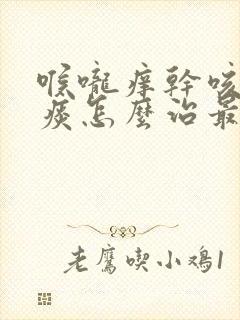 喉嚨痒幹咳
痰怎麼治最
老鷹喫小鸡1